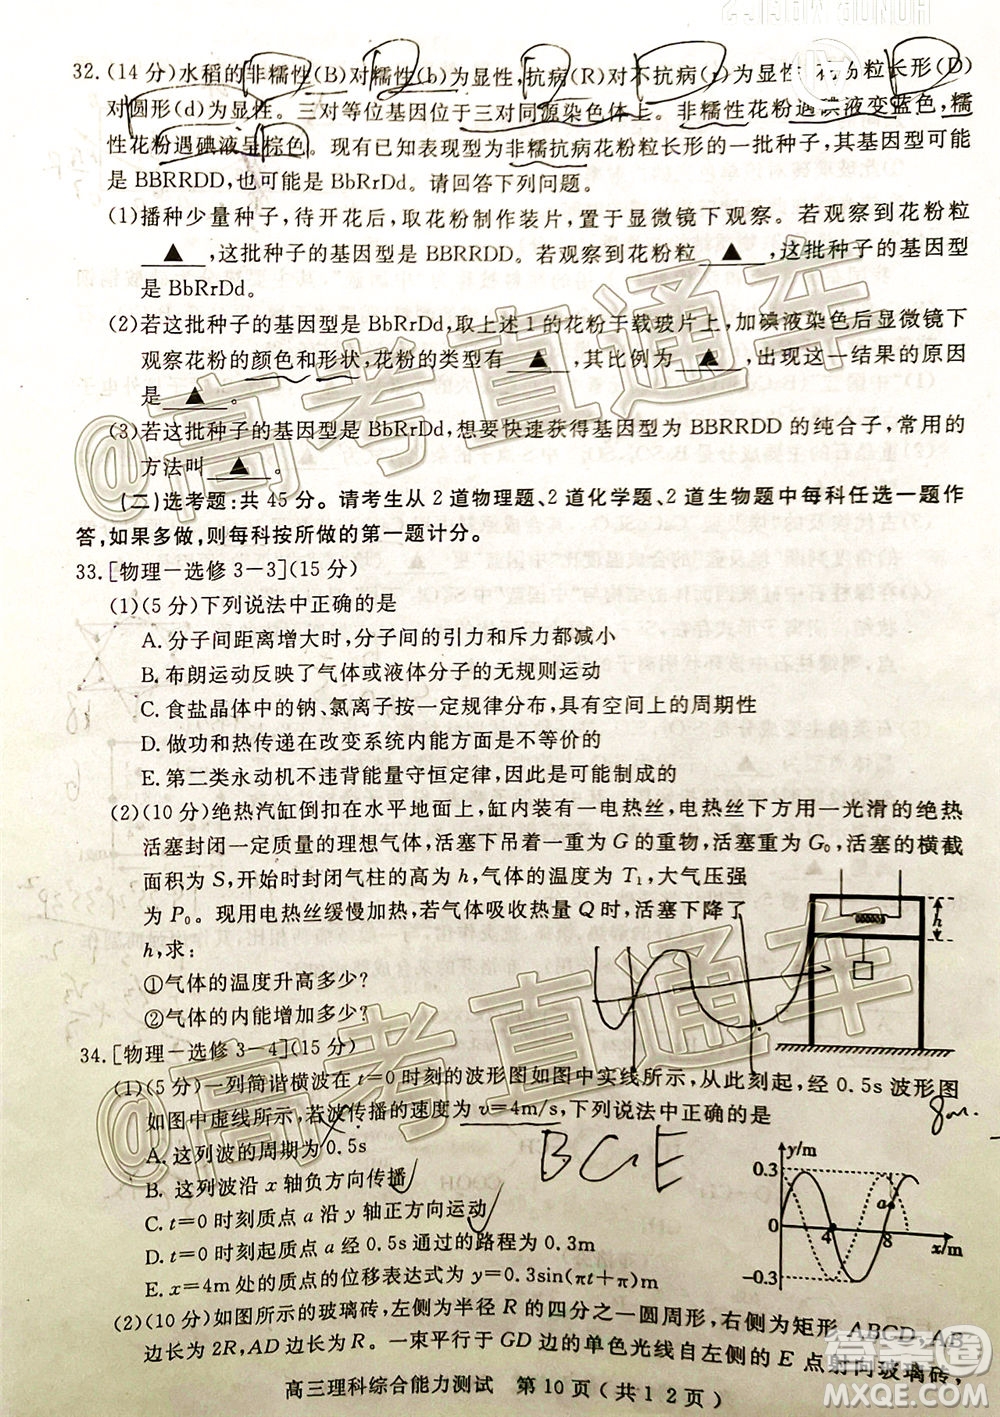 32.(14分)水稻的非糯性(B)对糯性(b)为显性,抗病(R)对不抗病(r)为显性,花粉粒长形(D)
对圆形(d)为显性。三对等位基因位于三对同源染色体上。非糯性花粉遇碘液变蓝色,糯
性花粉遇碘液呈棕色。现有已知表现型为非糯抗病花粉粒长形的一批种子,其基因型可能
是BBRRDD,也可能是BbRrDd。请回答下列问题。
(1)播种少量种子,待开花后,取花粉制作装片,置于显微镜下观察。若观察到花粉粒
▲,这批种子的基因型BBRRDD。若观察到花粉粒▲,这批种子的基因型
是BbRrDd。
(2)若这批种子的基因型是BbRrDd,取上述1的花粉于载玻片上,加碘液染色后显微镜下
观察花粉的颜色和形状,花粉的类型有▲,其比例为▲,出现这一结果的原因
是▲。
(3)若这批种子的基因型是BbRrDd,想要快速获得基因型为BBRRDD的纯合子,常用的
方法叫▲。
(二)选考题:共45分。请考生从2道物理题、2道化学题、2道生物题中每科任选一题作
答,如果多做,则每科按所做的第一题计分。
33.[物理一选修3-3](15分)
(1)(5分)下列说法中正确的是
A.分子间距离增大时,分子间的引力和斥力都减小
B.布朗运动反映了气体或液体分子的无规则运动
C.食盐晶体中的钠、氯离子按一定规律分布,具有空间上的周期性
D.做功和热传递在改变系统内能方面是不等价的
E.第二类永动机不违背能量守恒定律,因此可能制成的
(2)(10分)绝热汽缸倒扣在水平地面上,缸内装有一电热丝,电热丝下方用一光滑的绝热
活塞封闭一定质量的理想气体,活塞下吊着一重为G的重物,活塞重为G₀,活塞的截
面积为S,开始时封闭气柱的高为h,气体的温度为T₁,大气压强
为P₀。现用电热丝缓慢加热,若气体吸收热量Q时,活塞下降了
h,求:
①气体的温度升高多少?
②气体的内能增加多少?
h
34.[物理一选修3-4](15分)
(1)(5分)一列简谐横波在t=0时刻的波形图如图中实线所示,从此刻起,经0.5s波形图
如图中虚线所示,若波传播的速度为v=4m/s,下列说法中正确的是
8m.
A.这列波的周期为0.5s
B.这列波沿x轴负方向传播
C.t=0时刻质点a沿y轴正方向运动
D.从t=0时刻开始质点a经0.5s通过的路程为0.3m
E.x=4m处的质点的位移表达式为y=0.3sin(πt+π)m
BCE
y/m
0.3
0
4
8
a
x/m
-0.3
(2)(10分)如图所示的玻璃砖,左侧为半径R的四分之一圆周形,右侧为矩形ABCD,AB
边长为2R,AD边长为R。一束平行于GD边的单色光线自左侧的E点射向玻璃砖,
高三理科综合能力测试 第10页(共12页)
@高考直通车
@高考直通车
答案圈
MXQE.COM